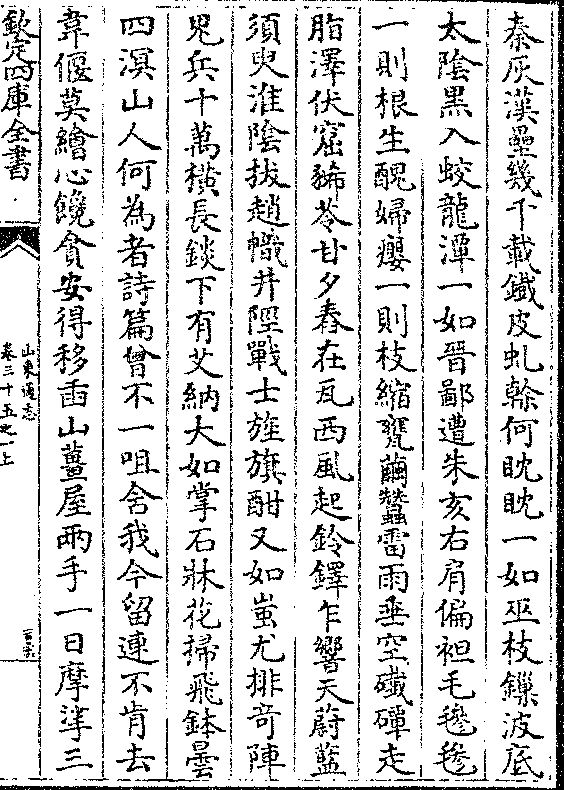 秦灰漢壘幾千載鐵皮虬榦何眈眈一如巫枝鏁波底
太陰黑入蛟龍潭一如晉鄙遭朱亥右肩偏袒毛毿毿
一則根生醜婦癭一則枝縮甕繭蠶雷雨垂空礮磹走
脂澤伏窟豨苓甘夕舂在瓦西風起鈴鐸乍響天蔚藍
須臾淮陰拔趙幟井陘戰士旌旗酣又如蚩尤排奇陣
兕兵十萬橫長錟下有艾納大如掌石牀花掃飛鉢曇
四溟山人何為者詩篇曾不一咀含我今留連不肯去
韋偃莫繪心饒貪安得移面山薑屋兩手一日摩挲三
欽定四庫全書
山東通志
卷三十五之一上